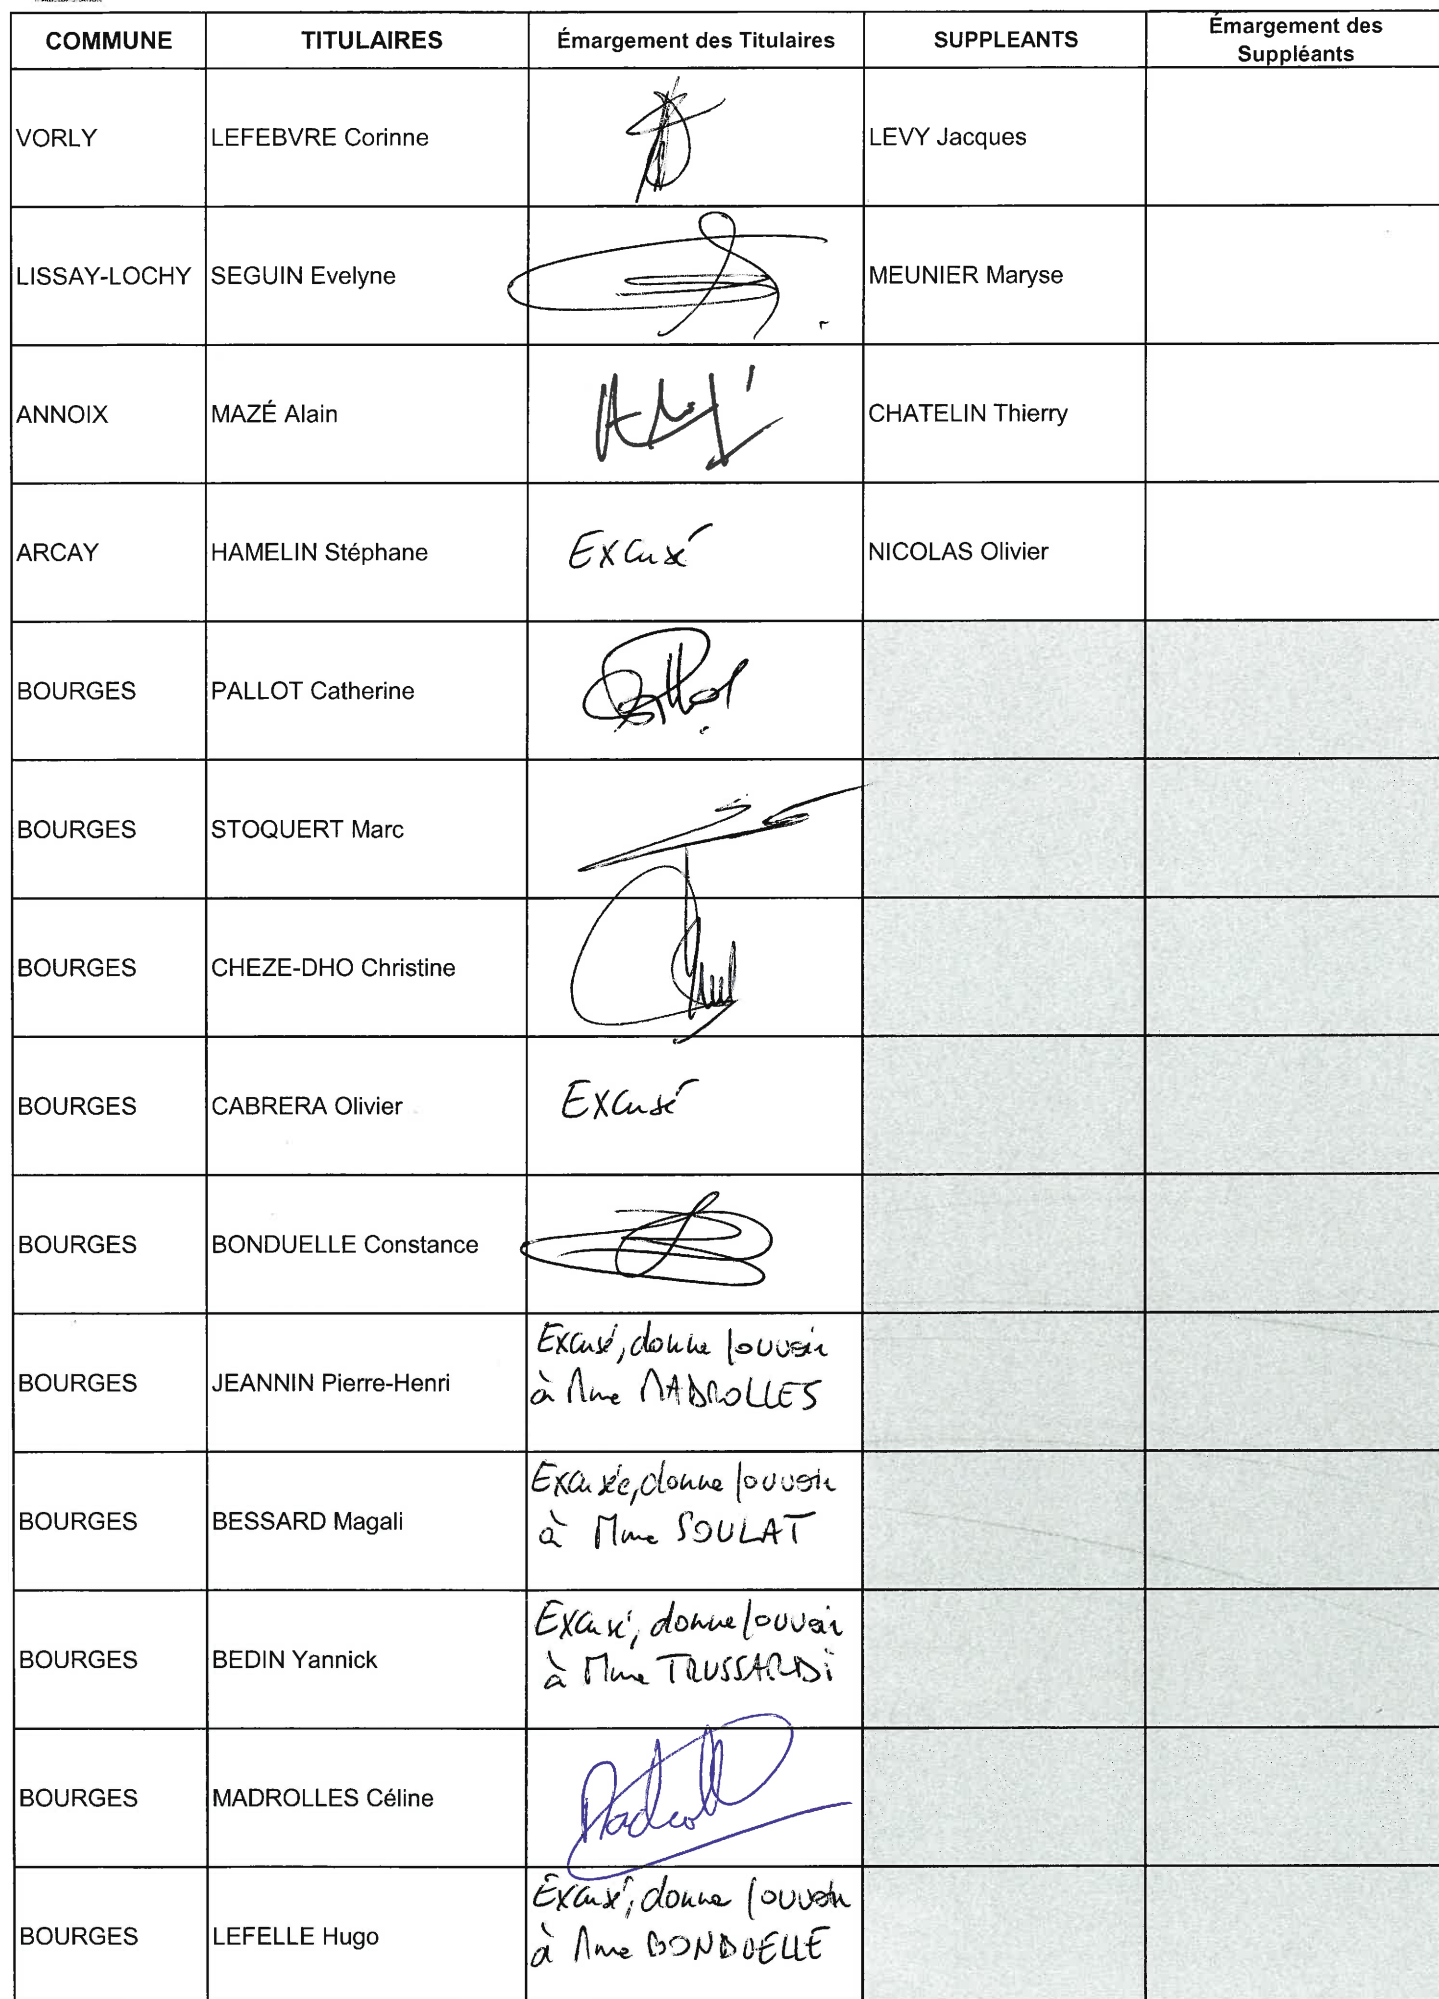 COMMUNE TITULAIRES Émargement des Titulaires SUPPLEANTS Émargement des
Suppléants
VORLY LEFEBVRE Corinne LEVY Jacques
LISSAY-LOCHY SEGUIN Evelyne MEUNIER Maryse
ANNOIX MAZÉ Alain CHATELIN Thierry
ARCAY HAMELIN Stéphane Excusé NICOLAS Olivier
BOURGES PALLOT Catherine
BOURGES STOQUERT Marc
BOURGES CHEZE-DHO Christine
BOURGES CABRERA Olivier Excusé
BOURGES BONDUELLE Constance
BOURGES JEANNIN Pierre-Henri Excusé, donne pouvoir
à Mme MADROLLES
BOURGES BESSARD Magali Excusée, donne pouvoir
à Mme SOULAT
BOURGES BEDIN Yannick Excusé, donne pouvoir
à Mme TRUSSARDi
BOURGES MADROLLES Céline Madroll
BOURGES LEFELLE Hugo Excusé, donne pouvoir
à Mme BONDUELLE